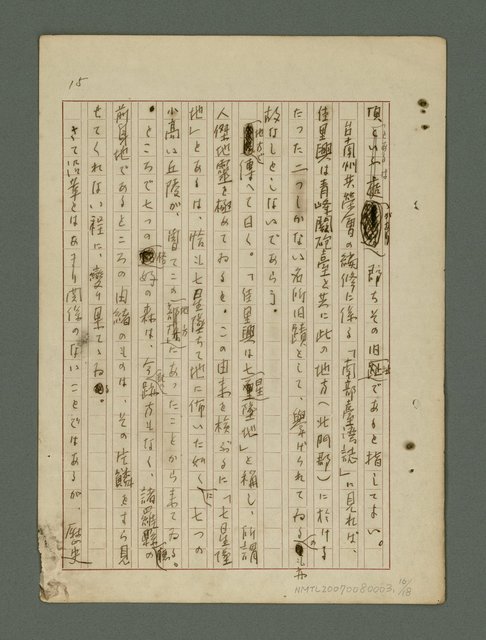 15
頃といふ 即ちその旧 であると指してよい。
台南州共榮會の編修に係る「南部臺灣誌」に見れば、
佳里興は青峰闕砲臺と共に此の地方(北門郡)に於ける
たった二つしかない名所旧蹟として、擧げられてゐるのも亦
故なしとしないであらう。
地方 傳へて曰く。「佳里興は七星墜地」と稱し、所謂
人傑地靈を極めてゐると。この由来を検ぶるに「七星墜
地」とあるは、恰も七星墜ちて地に布いた如くに七つの
小高い丘陵が、嘗てこの地方にあったことから来てゐる。
ところで七つの恰好の森は、今跡方もなく、諸羅縣の
前身地であるところの由緒のものは、その片鱗をすら見
せてくれない程に、變り果てゝゐる。
さて沿革とはあまり関係のないことではあるが、歴史
NMTL20070080003
16/18